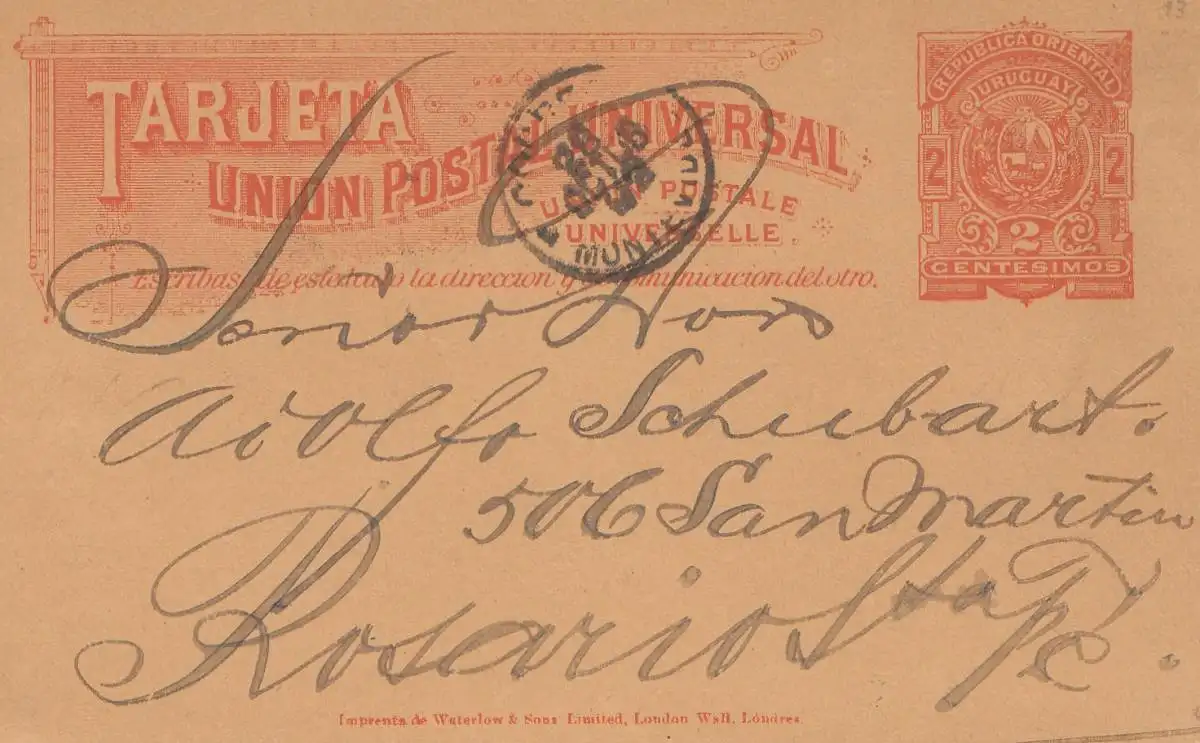 TARJETA
UNION POSTAL UNIVERSAL
UNION POSTALE
UNIVERSELLE
Escríbase de este lado la dirección y la comunicacion del otro.
REPUBLICA ORIENTAL
URUGUAY
2 2
2
CENTESIMOS
MONTEVIDEO
Señor Don
Adolfo Schubart.
506 San Martin
Rosario Sta Fé.
Imprenta de Waterlow & Sons Limited, London Wall, Londres
13